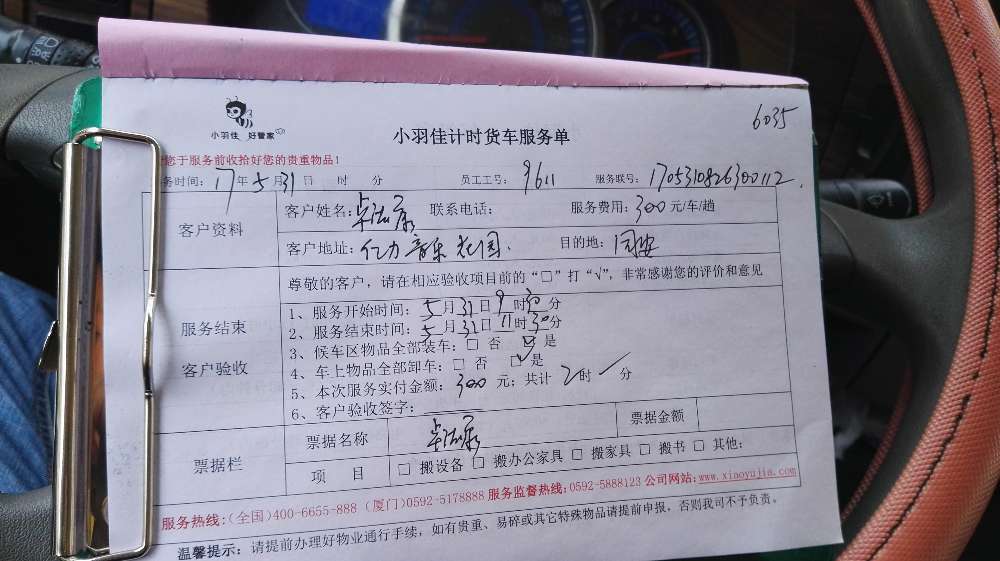 6035
小羽佳 好管家
小羽佳计时货车服务单
您于服务前收拾好您的贵重物品！
务时间：17年5月31日 时 分 员工工号：9611 服务联号：1705310826300112
客户资料
客户姓名： 联系电话： 服务费用：300元/车/趟
客户地址：亿力音乐花园 目的地：同安
服务结束
客户验收
尊敬的客户，请在相应验收项目前的“□”打“√”，非常感谢您的评价和意见
1、服务开始时间：5月31日9时30分
2、服务结束时间：5月31日11时30分
3、候车区物品全部装车：□ 否 ☑ 是
4、车上物品全部卸车：□ 否 ☑是
5、本次服务实付金额：300元；共计2时 分
6、客户验收签字：
票据栏
票据名称 票据金额
项 目 □ 搬设备 □ 搬办公家具 □ 搬家具 □ 搬书 □ 其他：
服务热线：(全国)400-6655-888 (厦门)0592-5178888 服务监督热线：0592-5888123 公司网站：www.xiaoyujia.com
温馨提示：请提前办理好物业通行手续，如有贵重、易碎或其它特殊物品请提前申报，否则我司不予负责。